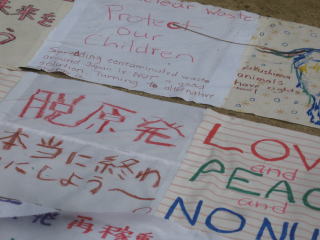 clear Waste
Protect
Our
Children
Spreading contaminated waste
around Japan is NOT a good
solution. Turning to alternative
Fukushima
animals
have rights
脱原発
本当に終わ
にしよう〜
LOV
and
PEAC
and
NO NU
再稼